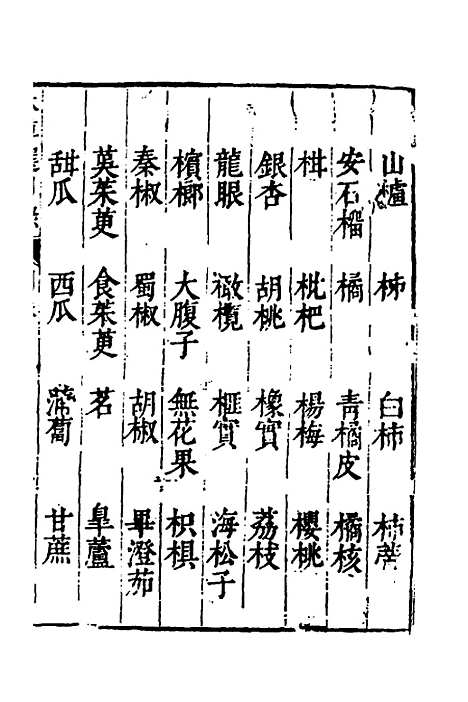 山樝 柹 白柿 柿蔕
安石榴 橘 青橘皮 橘核
柑 枇杷 楊梅 櫻桃
銀杏 胡桃 橡實 荔枝
龍眼 橄欖 榧實 海松子
檳榔 大腹子 無花果 枳椇
秦椒 蜀椒 胡椒 畢澄茄
吴茱萸 食茱萸 茗 皐蘆
甜瓜 西瓜 蒲萄 甘蔗